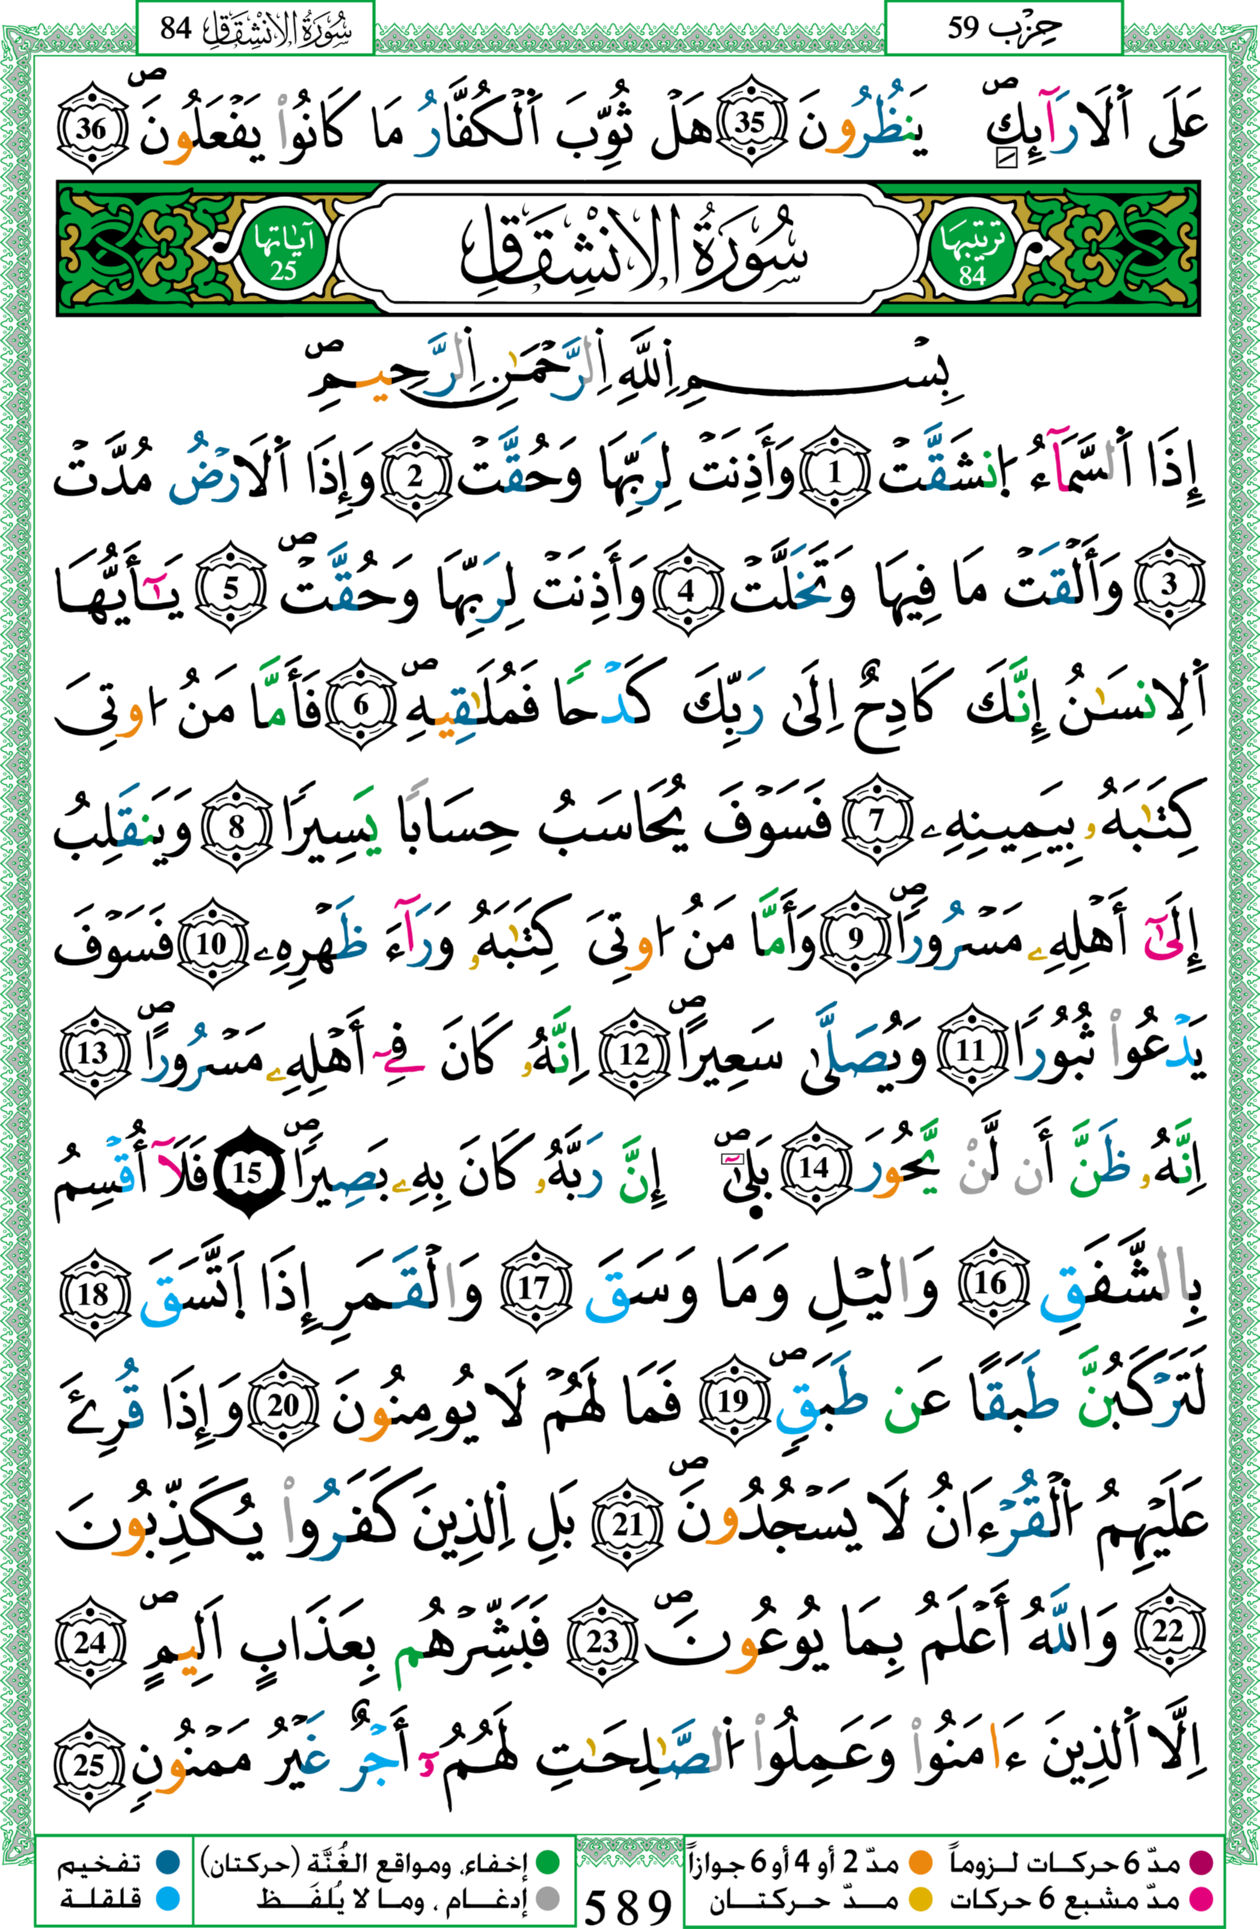 سُورَةُ الِانْشِقَاقِ 84
حِزْب 59
عَلَى اَ۬لَارَآئِكِۖ يَنظُرُونَ 35 هَلْ ثُوِّبَ اَ۬لْكُفَّارُ مَا كَانُواْ يَفْعَلُونَۖ 36
ترتيبها 84
سُورَةُ الِانْشِقَاقِ
آياتها 25
بِسْمِ اِ۬للَّهِ اِ۬لرَّحْمَٰنِ اِ۬لرَّحِيمِۖ
إِذَا اَ۬لسَّمَآءُ اُ۪نشَقَّتْ 1 وَأَذِنَتْ لِرَبِّهَا وَحُقَّتْ 2 وَإِذَا اَ۬لَارْضُ مُدَّتْ
3 وَأَلْقَتْ مَا فِيهَا وَتَخَلَّتْ 4 وَأَذِنَتْ لِرَبِّهَا وَحُقَّتْۖ 5 يَٰٓأَيُّهَا
اَ۬لِانسَٰنُ إِنَّكَ كَادِحٌ اِلَىٰ رَبِّكَ كَدْحًا فَمُلَٰقِيهِۖ 6 فَأَمَّا مَنُ ا۟وتِىَ
كِتَٰبَهُۥ بِيَمِينِهِۦ 7 فَسَوْفَ يُحَاسَبُ حِسَابًا يَسِيرًا 8 وَيَنقَلِبُ
إِلَىٰٓ أَهْلِهِۦ مَسْرُورًاۖ 9 وَأَمَّا مَنُ ا۟وتِىَ كِتَٰبَهُۥ وَرَآءَ ظَهْرِهِۦ 10 فَسَوْفَ
يَدْعُواْ ثُبُورًا 11 وَيُصَلَّىٰ سَعِيرًاۖ 12 اِنَّهُۥ كَانَ فِىٓ أَهْلِهِۦ مَسْرُورًاۖ 13
اِنَّهُۥ ظَنَّ أَن لَّنْ يَّحُورَ 14 بَلَىٰٓۖ إِنَّ رَبَّهُۥ كَانَ بِهِۦ بَصِيرًاۖ 15 فَلَآ أُقْسِمُ
بِالشَّفَقِ 16 وَاليْلِ وَمَا وَسَقَ 17 وَالْقَمَرِ إِذَا اَ۪تَّسَقَ 18
لَتَرْكَبُنَّ طَبَقًا عَن طَبَقٍۖ 19 فَمَا لَهُمْ لَا يُومِنُونَ 20 وَإِذَا قُرِئَ
عَلَيْهِمُ اُ۬لْقُرْءَانُ لَا يَسْجُدُونَۖ 21 بَلِ اِ۬لذِينَ كَفَرُواْ يُكَذِّبُونَ
22 وَاللَّهُ أَعْلَمُ بِمَا يُوعُونَۖ 23 فَبَشِّرْهُم بِعَذَابٍ اَلِيمٍۖ 24
اِلَّا اَ۬لذِينَ ءَامَنُواْ وَعَمِلُواْ اُ۬لصَّٰلِحَٰتِ لَهُمُۥٓ أَجْرٌ غَيْرُ مَمْنُونٍ 25
مدّ 6 حركات لزوماً
مدّ 2 أو 4 أو 6 جوازاً
مدّ مشبع 6 حركات
مدّ حركتان
589
إخفاء، ومواقع الغُنَّة (حركتان)
إدغام، وما لا يُلفَظ
تفخيم
قلقلة